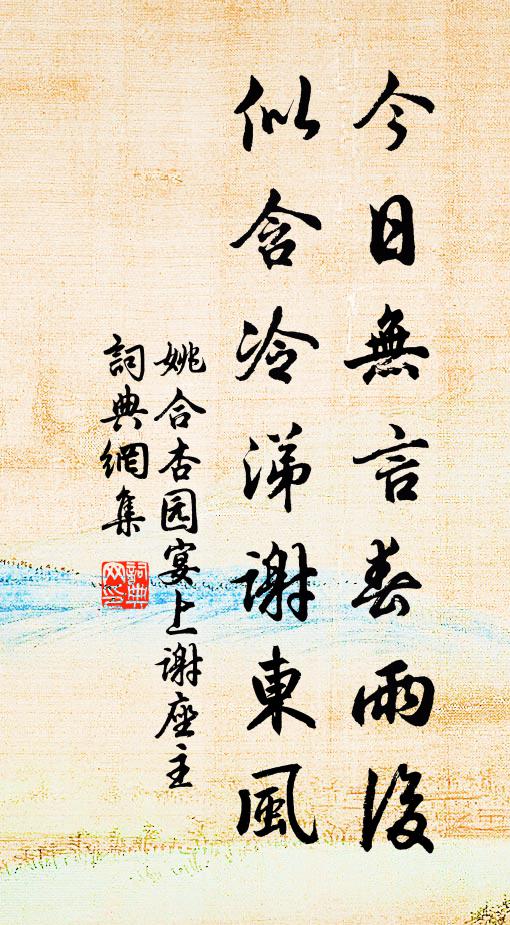 今日無言春雨後
似含冷涕謝東風
姚合杏园宴上谢座主
詞典網集
詞典网印